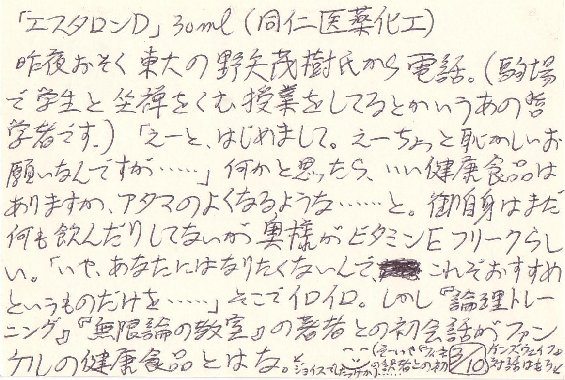 「エスタロンD」30ml(同仁医薬化工)
昨夜おそく東大の野矢茂樹氏から電話。(駒場
で学生と坐禅をくむ授業をしてるとかいうあの哲
学者です。)「えーと、はじめまして。えーちょっと恥かしいお
願いなんですが……」何かと思ったら、いい健康食品は
ありますか、アタマのよくなるような……と。御自身はまだ
何も飲んだりしてないが奥様がビタミンEフリークらし
い。「いや、あなたにはなりたくないんで、これぞおすすめ
というものだけを……」そこでイロイロ。しかし『論理トレー
ニング』『無限論の教室』の著者との初会話がファン
ケルの健康食品とはな。
ジョイスでしたっけか
の訳者との初
対話は
2/10